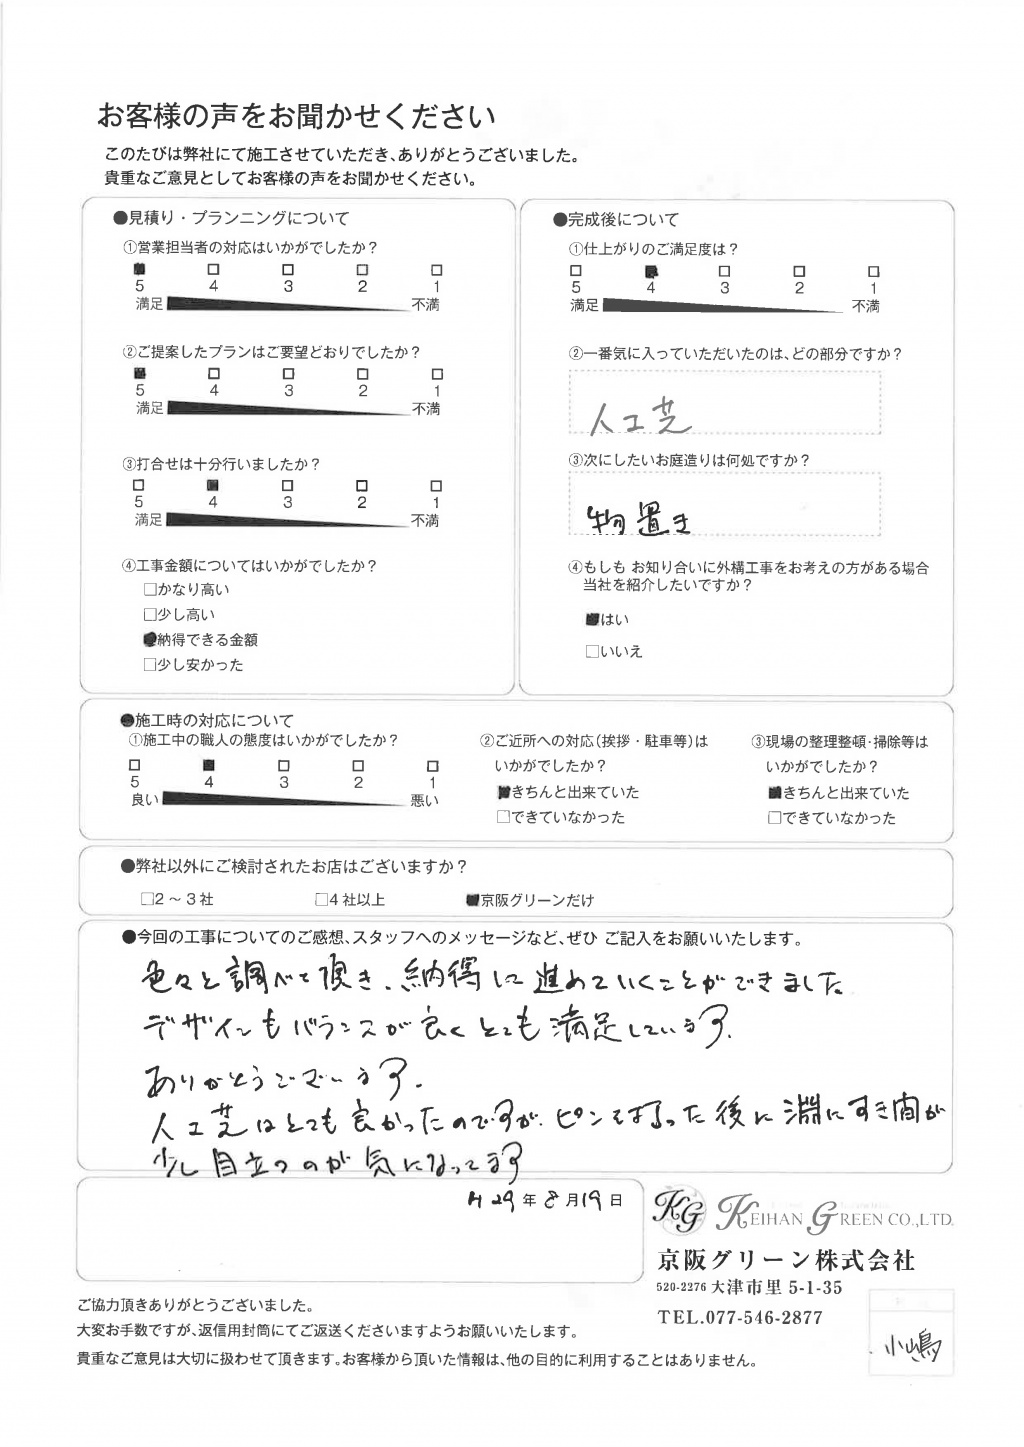 お客様の声をお聞かせください
このたびは弊社にて施工させていただき、ありがとうございました。
貴重なご意見としてお客様の声をお聞かせください。
●見積り・プランニングについて
①営業担当者の対応はいかがでしたか？
■ □ □ □ □
5 4 3 2 1
満足 不満
②ご提案したプランはご要望どおりでしたか？
■ □ □ □ □
5 4 3 2 1
満足 不満
③打合せは十分行いましたか？
□ ■ □ □ □
5 4 3 2 1
満足 不満
④工事金額についてはいかがでしたか？
□かなり高い
□少し高い
■納得できる金額
□少し安かった
●完成後について
①仕上がりのご満足度は？
□ ■ □ □ □
5 4 3 2 1
満足 不満
②一番気に入っていただいたのは、どの部分ですか？
人工芝
③次にしたいお庭造りは何処ですか？
物置き
④もしも お知り合いに外構工事をお考えの方がある場合
当社を紹介したいですか？
■はい
□いいえ
●施工時の対応について
①施工中の職人の態度はいかがでしたか？
□ ■ □ □ □
5 4 3 2 1
良い 悪い
②ご近所への対応（挨拶・駐車等）は
いかがでしたか？
■きちんと出来ていた
□できていなかった
③現場の整理整頓・掃除等は
いかがでしたか？
■きちんと出来ていた
□できていなかった
●弊社以外にご検討されたお店はございますか？
□2～3社 □4社以上 ■京阪グリーンだけ
●今回の工事についてのご感想、スタッフへのメッセージなど、ぜひ ご記入をお願いいたします。
色々と調べて頂き、納得して進めていくことができました
デザインもバランスが良くとても満足しています。
ありがとうございます。
人工芝はとても良かったのですが、ピンをはった後に淵にすき間が
少し目立つのが気になってます
H29年8月19日
KG KEIHAN GREEN CO.,LTD.
京阪グリーン株式会社
520-2276 大津市里 5-1-35
TEL.077-546-2877
ご協力頂きありがとうございました。
大変お手数ですが、返信用封筒にてご返送くださいますようお願いいたします。
貴重なご意見は大切に扱わせて頂きます。お客様から頂いた情報は、他の目的に利用することはありません。
小嶋